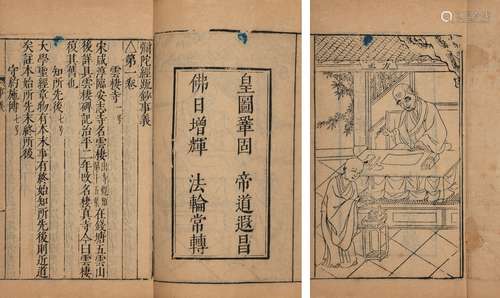 皇圖鞏固 帝道遐昌
佛日增輝 法輪常轉
彌陀經疏鈔事義
△第一卷
雲棲寺
宋咸淳臨安志寺名雲棲在錢塘五雲山
後詳具雲棲碑記治平二年改名棲真寺今曰雲棲
復其舊也
知所先後
大學聖經章物有本末事有終始知所先後則近道
矣註本始所先末終所後
守約施博